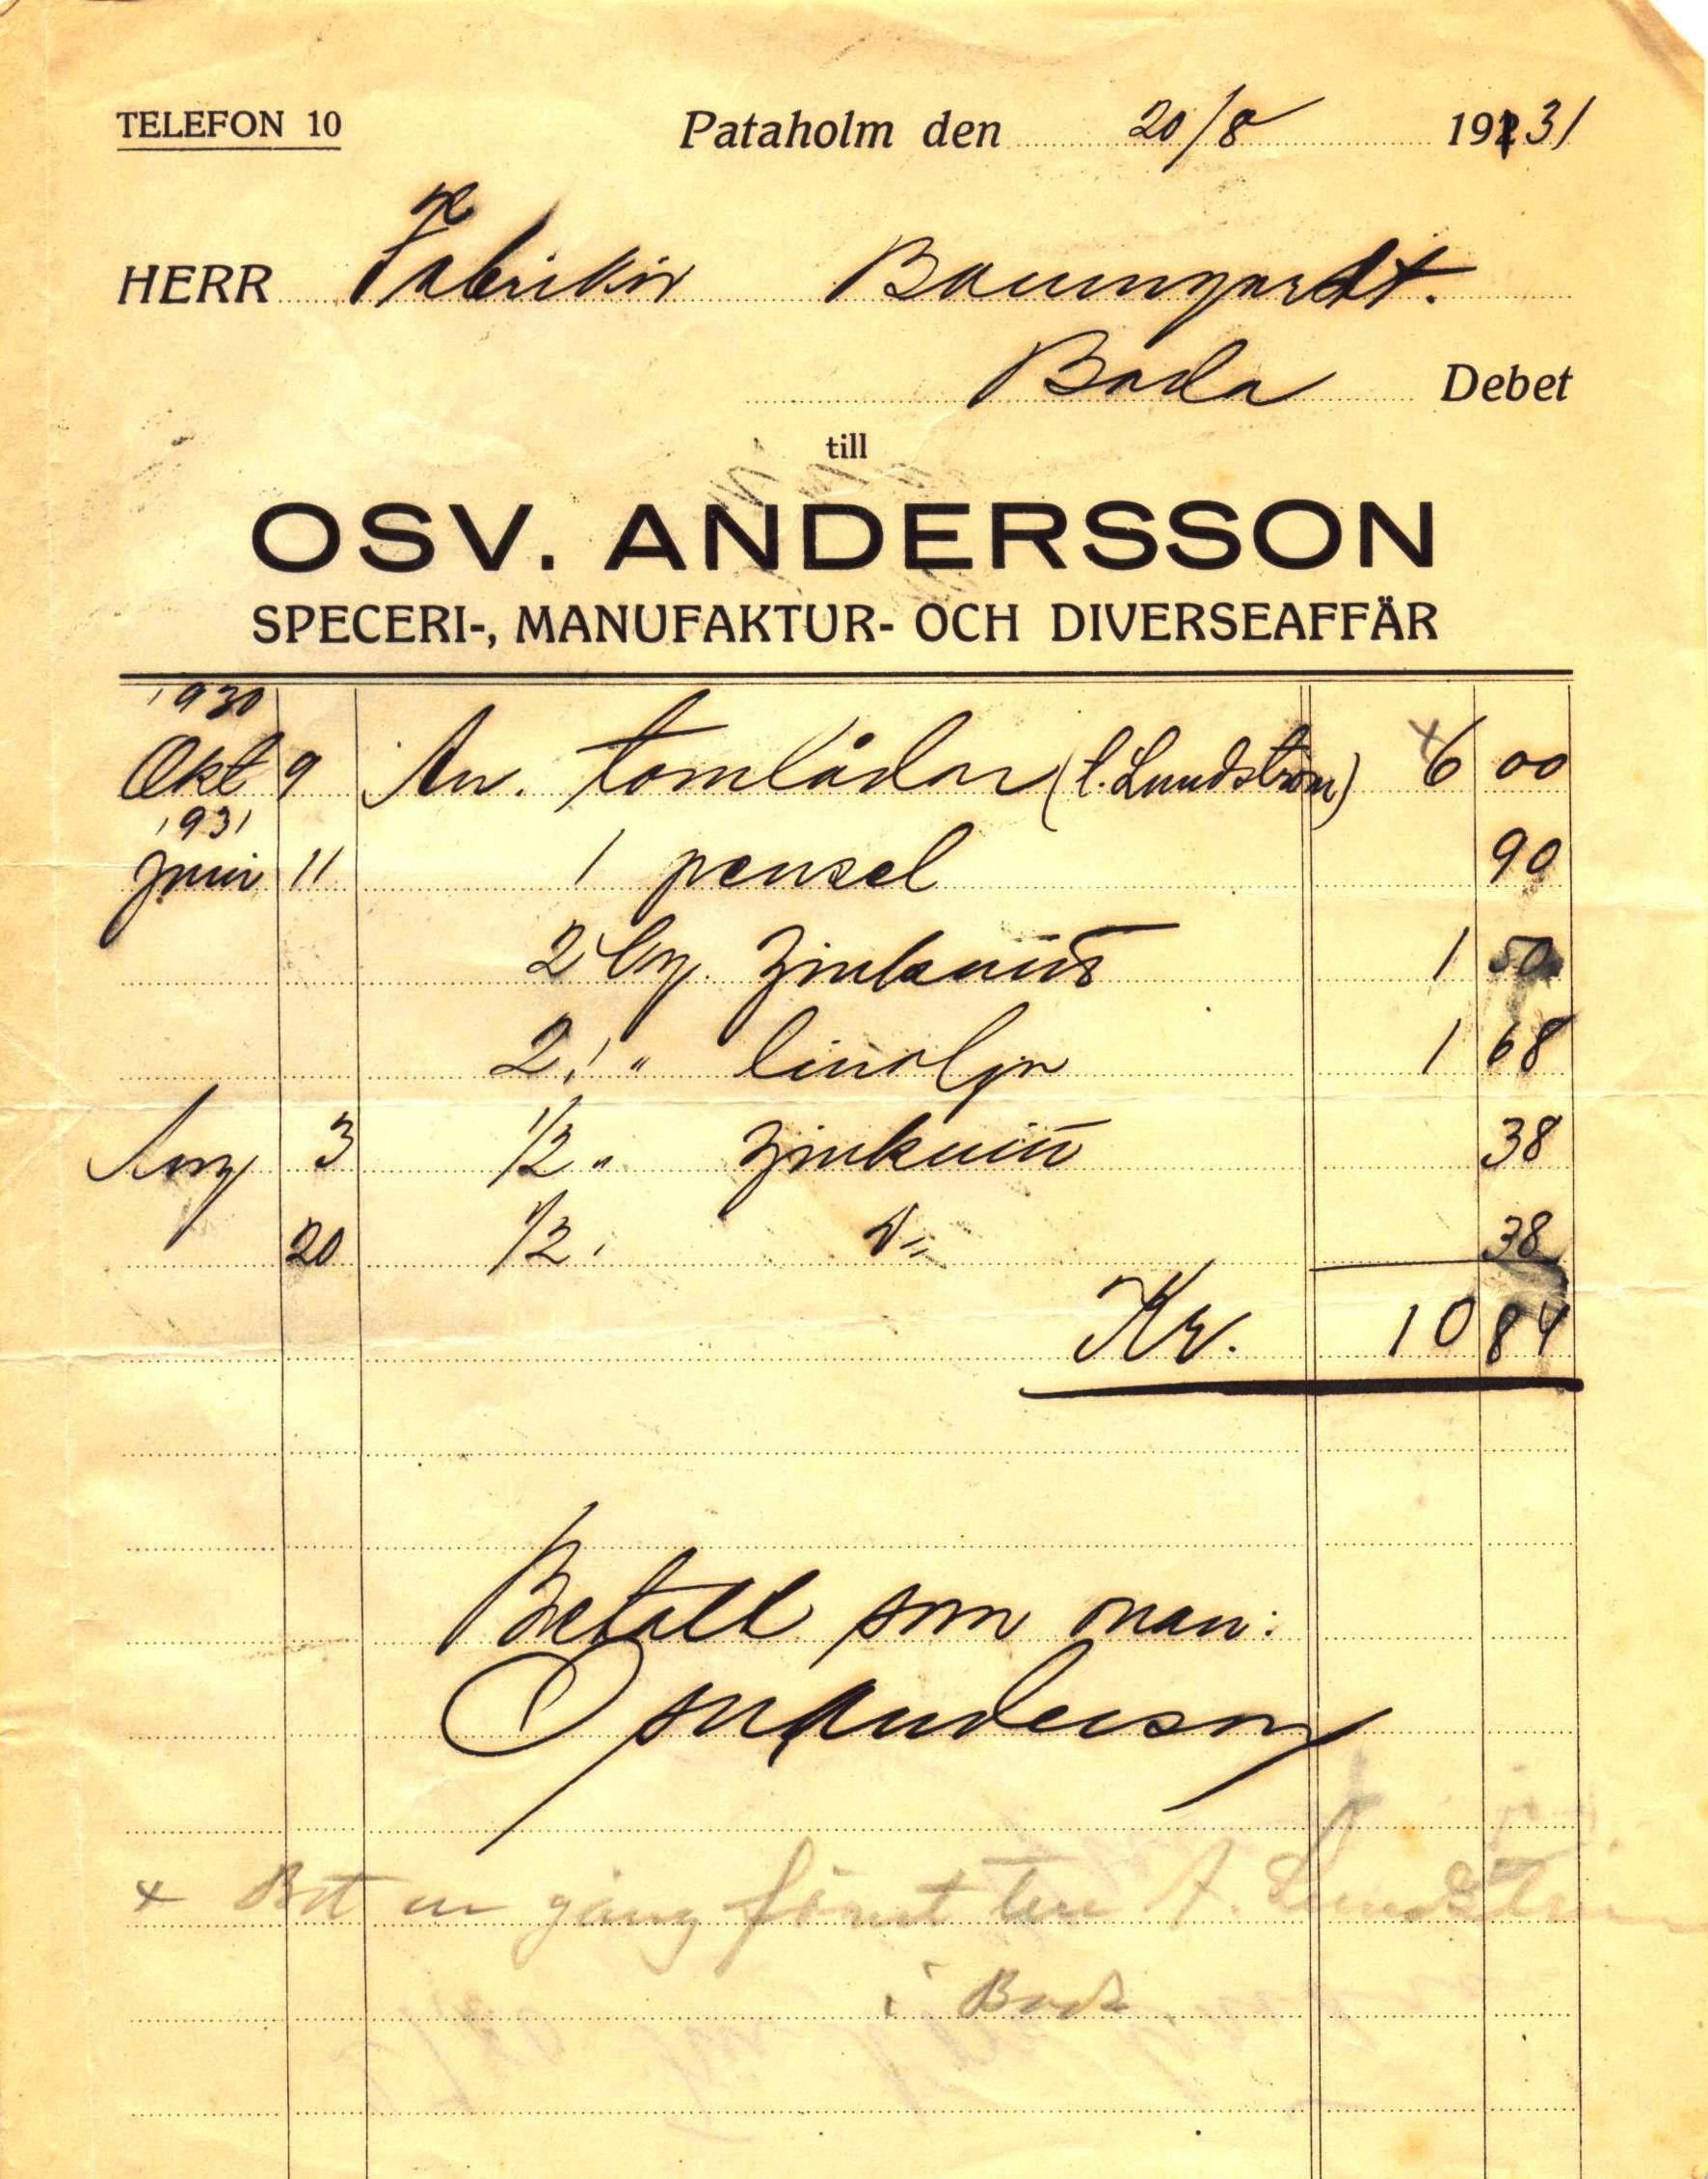 TELEFON 10 Pataholm den 20/8 1931
HERR Fabrikör Baumgardt.
Boda Debet
till
OSV. ANDERSSON
SPECERI-, MANUFAKTUR- OCH DIVERSEAFFÄR
1930
Okt 9 An. tomlådor (l. Lundström) x 6 00
1931
Juni 11 1 pensel 90
2 kg. Zinkvitt 1 50
2 " linolja 1 68
Aug 3 1/2 " Zinkvitt 38
20 1/2 " D:o 38
Kr. 10 84
Betalt som ovan:
Osv Andersson
x Bet en gång förut till A. Lundström
i Boda